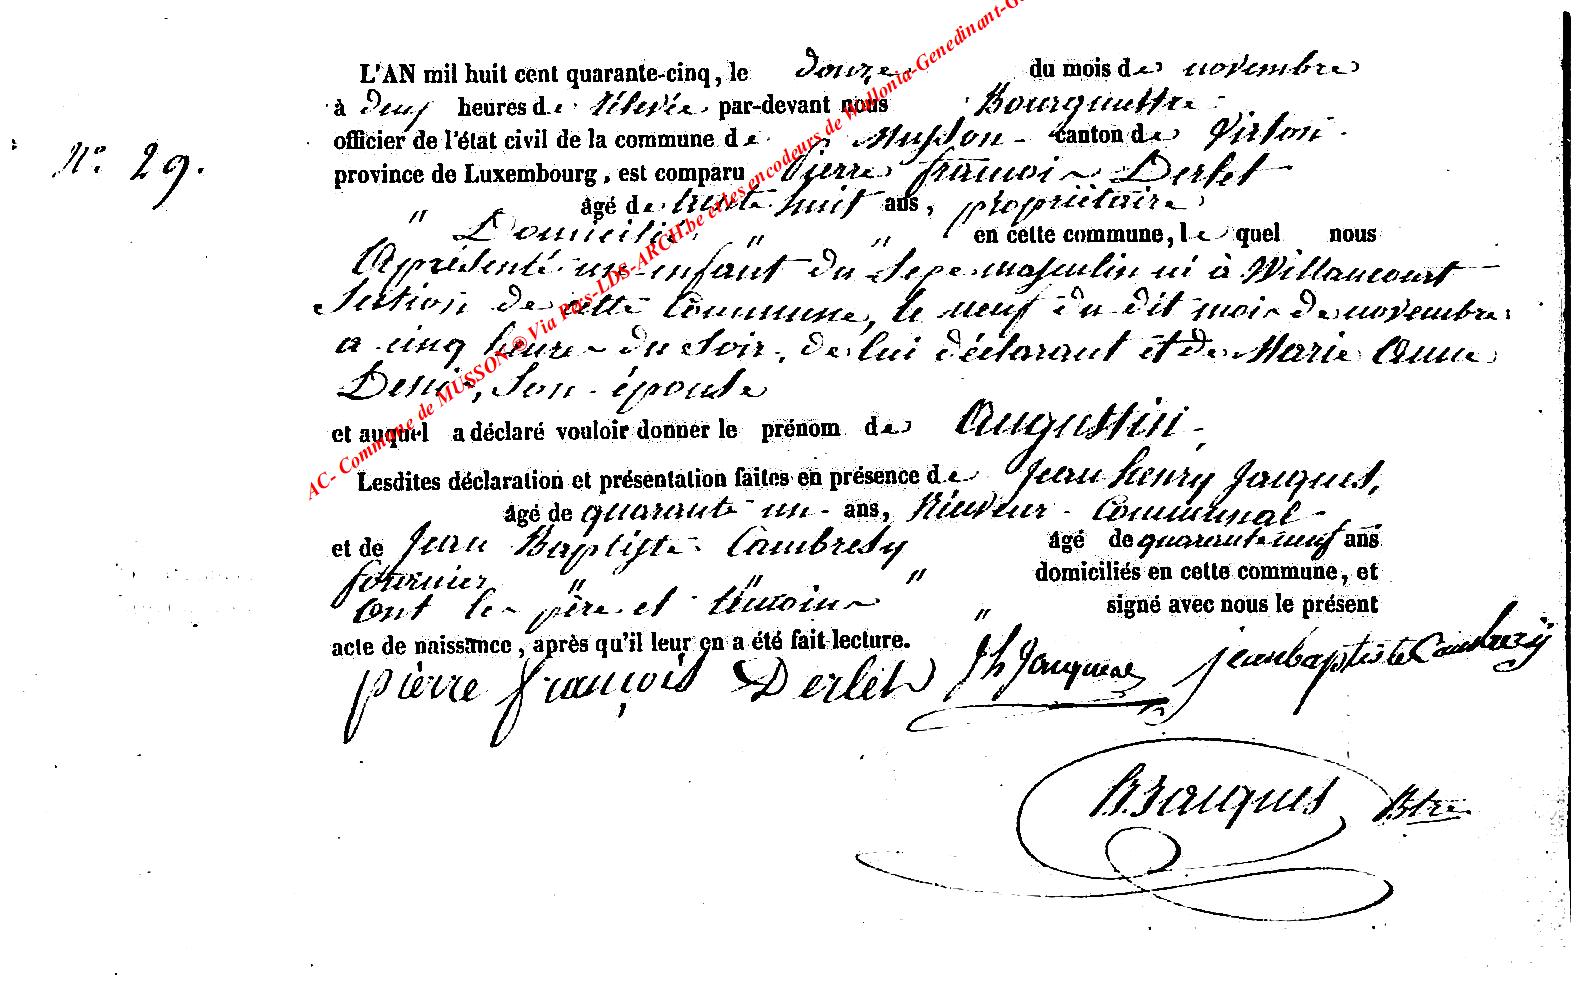 L'AN mil huit cent quarante-cinq, le douze du mois de novembre
à deux heures de rélevée par-devant nous Bourguestre
officier de l'état civil de la commune de Musson canton de Virton
N° 29.
province de Luxembourg, est comparu Pierre françois Derlet
âgé de trente huit ans, propriétaire
" Domicilié " " en cette commune, le quel nous
a présenté un enfant du sexe masculin né à Willancourt
Section de cette Commune, le neuf du dit mois de novembre
a cinq heures du soir, de lui déclarant et de Marie Anne
Denis, son épouse
et auquel a déclaré vouloir donner le prénom de Augustin,
Lesdites déclaration et présentation faites en présence de Jean henry Jacques,
âgé de quarante un ans, Receveur Communal
et de Jean Baptiste Cambresy âgé de quarante neuf ans
fournier " " " domiciliés en cette commune, et
Ont les père et témoins " signé avec nous le présent
acte de naissance, après qu'il leur en a été fait lecture.
pierre françois Derlet Jh Jacques jeanbaptiste Cambrezÿ
Jacques Btre
AC- Commune de MUSSON @ Via Pers-LDS-ARCH.be et les encodeurs de Wallonia-Genedinant-G